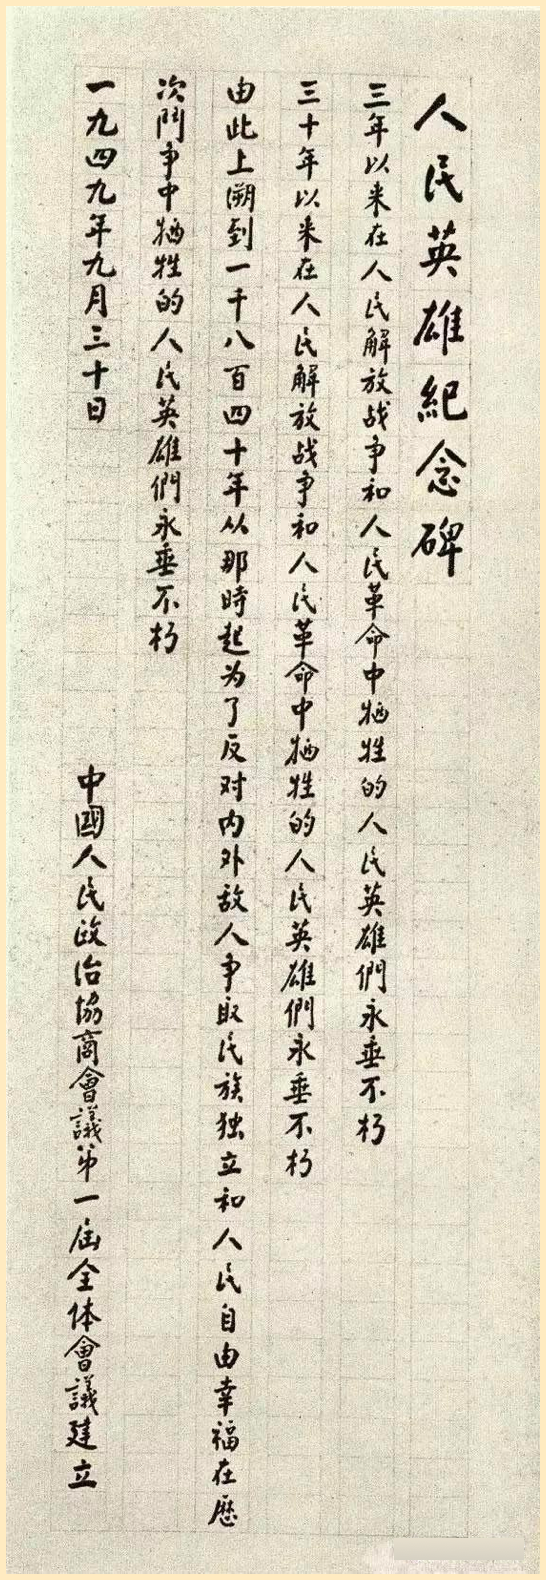 人民英雄紀念碑
三年以来在人民解放战争和人民革命中牺牲的人民英雄們永垂不朽
三十年以来在人民解放战争和人民革命中牺牲的人民英雄們永垂不朽
由此上溯到一千八百四十年从那時起为了反对内外敌人争取民族独立和人民自由幸福在歷
次鬥争中牺牲的人民英雄們永垂不朽
一九四九年九月三十日
中國人民政治協商會議第一届全体會議建立